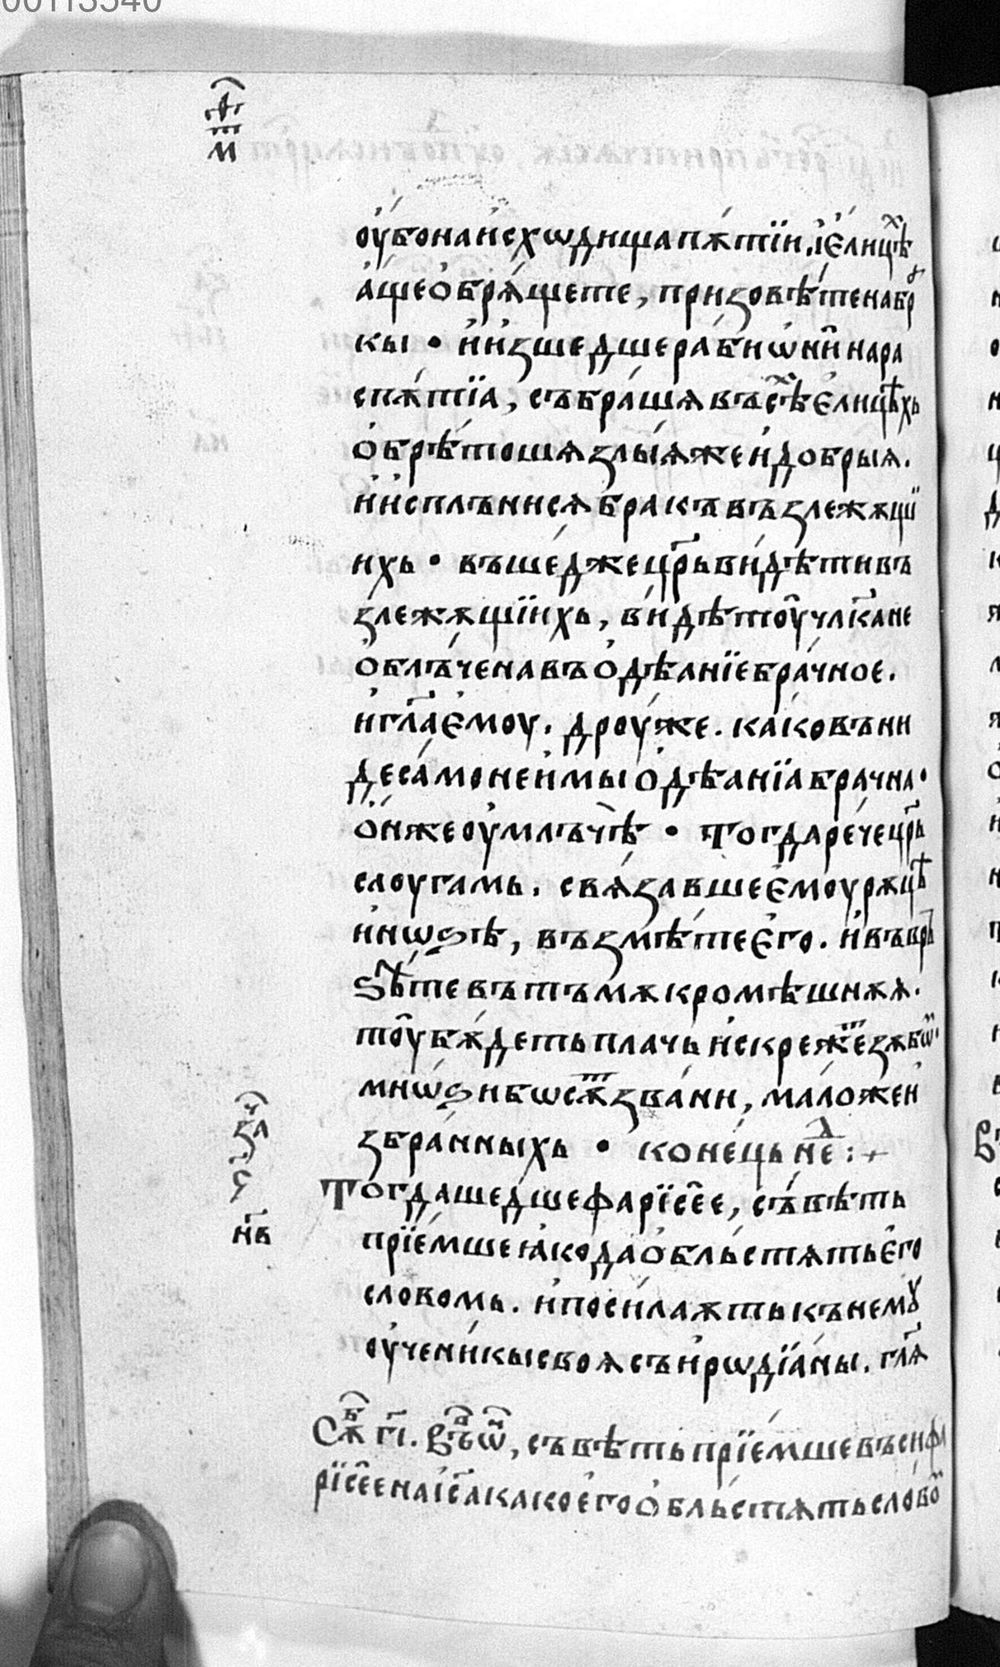 00113340
оу҆бонаи҆схѡдищапѫ́тїи. і҆е҆ли́цѣⷯ
а҆́щео҆брѧ́щете, призовѣ́тенабра
кы • и҆и҆зше́дшераби́ѡ҆ниⷩ҇нара
спѫ́тїа, събра́шѧвъсѣⷯе҆лицѣ́хь
о҆брѣ́тошѧзлы́ѧжеи҆до́брыѧ.
и҆и҆спльни́сѧбра́къвъзлежѧщїи
ихь • въше́джецр҃ьви́дѣтивъ
злежѧщїихь, ви́дѣтоу҆чл҃канe
о҆блъ́ченавъо҆дѣ́анїебра́чное.
и҆гл҃ае҆моу. дроу́же. ка́ковъни
десѣ́монеи҆мыо҆дѣ́анїабра́чна•
о҆́нжеоу҆млъчѣ̀ • Тогдарече́цр҃ь
слоуга́мь. свѧза́вшее҆моурѫцѣ
и҆но́ѕѣ, възмѣ́тее҆го. и҆въврь
ѕѣ́тевътъмѫкромѣ́шнѧѧ.
тоу҆бѫ́детьпла́чьи҆скре́жеⷮзѫбѡⷨ•
мнѡ́ѕибосѫⷮзва́ни, ма́ложеи҆
збра́нныхь • коне́цьнⷣе :+
Тогдаше́дшефарїсе́е, съвѣ́ть
прїе́мшеꙗ҆кодао҆бльстѧ́тье҆го
сло́вомь. и҆посила́ѫтькънемꙋ
оу҆ченикы́своѧсъи҆рѡдїа́ны. гл҃ѧ
Сѫⷠ гі҃. въ ѡⷮ, съвѣ́тьпрїе́мшевъсифа
рїсе́енаі҆с҃акакое҆гоо҆бльстѧ́тьсло́воⷨ